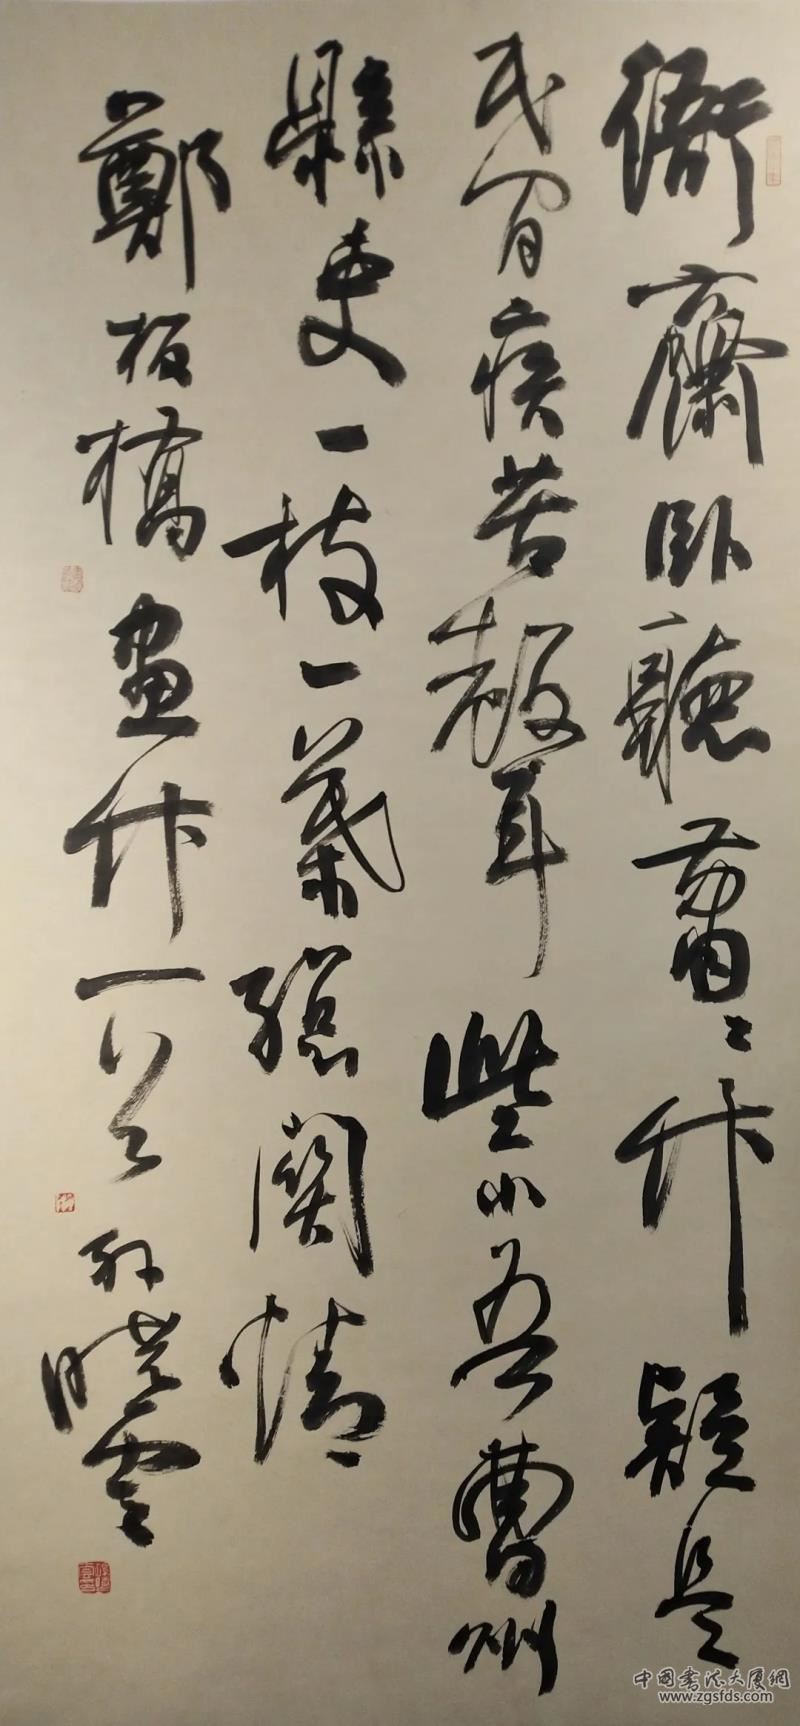 衙齋卧聽蕭〻竹疑是
民間疾苦聲些小吾曹州
縣吏一枝一葉總關情
鄭板橋畫竹一首 孫曉雲
中国书法大厦网
www.zgsfds.com